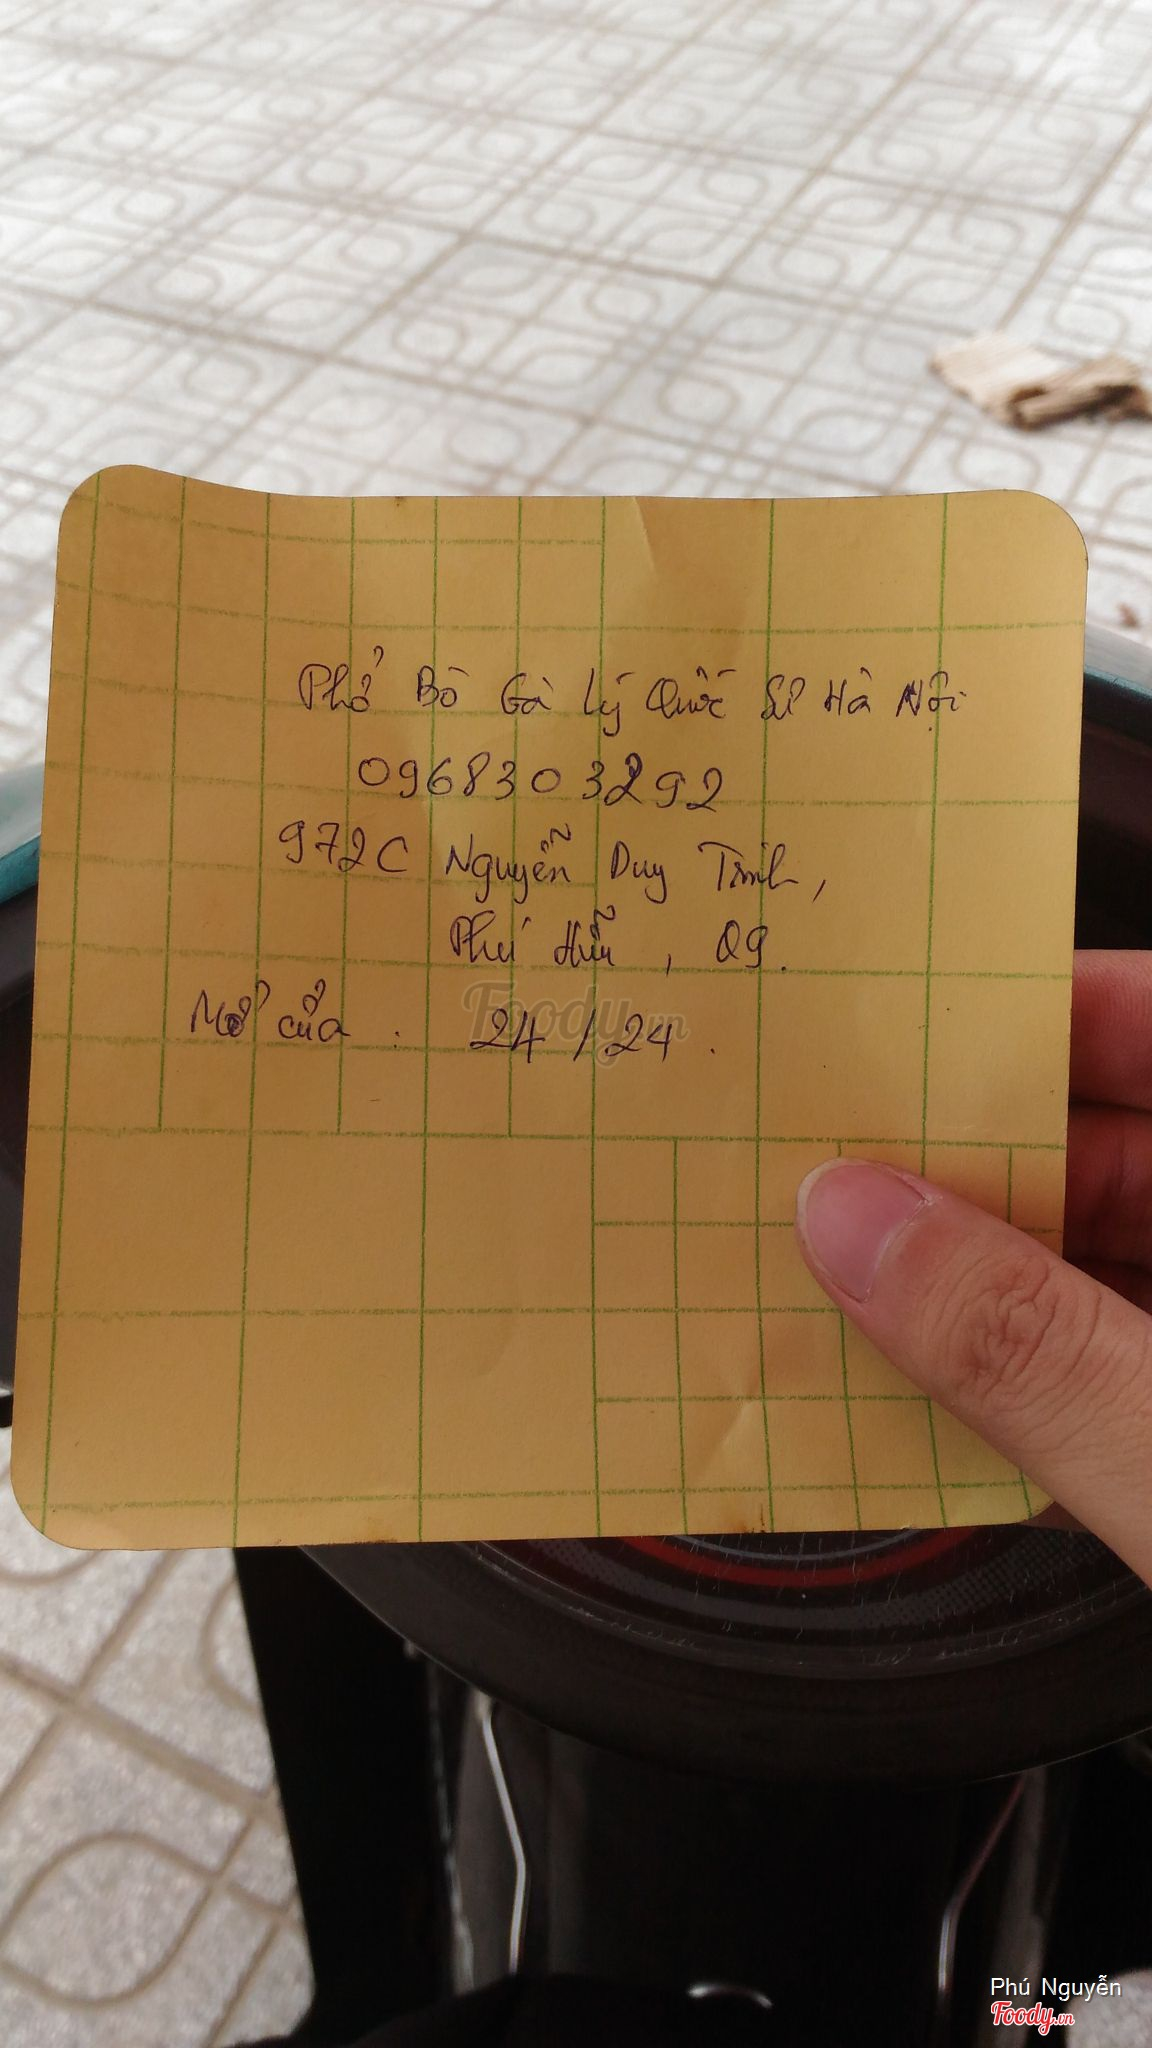 Phở Bò Gà Lý Quốc Sư Hà Nội
0968303292
972C Nguyễn Duy Trinh,
Phú Hữu, Q9.
Mở cửa . 24/24.
Foody.vn
Phú Nguyễn
Foody.vn